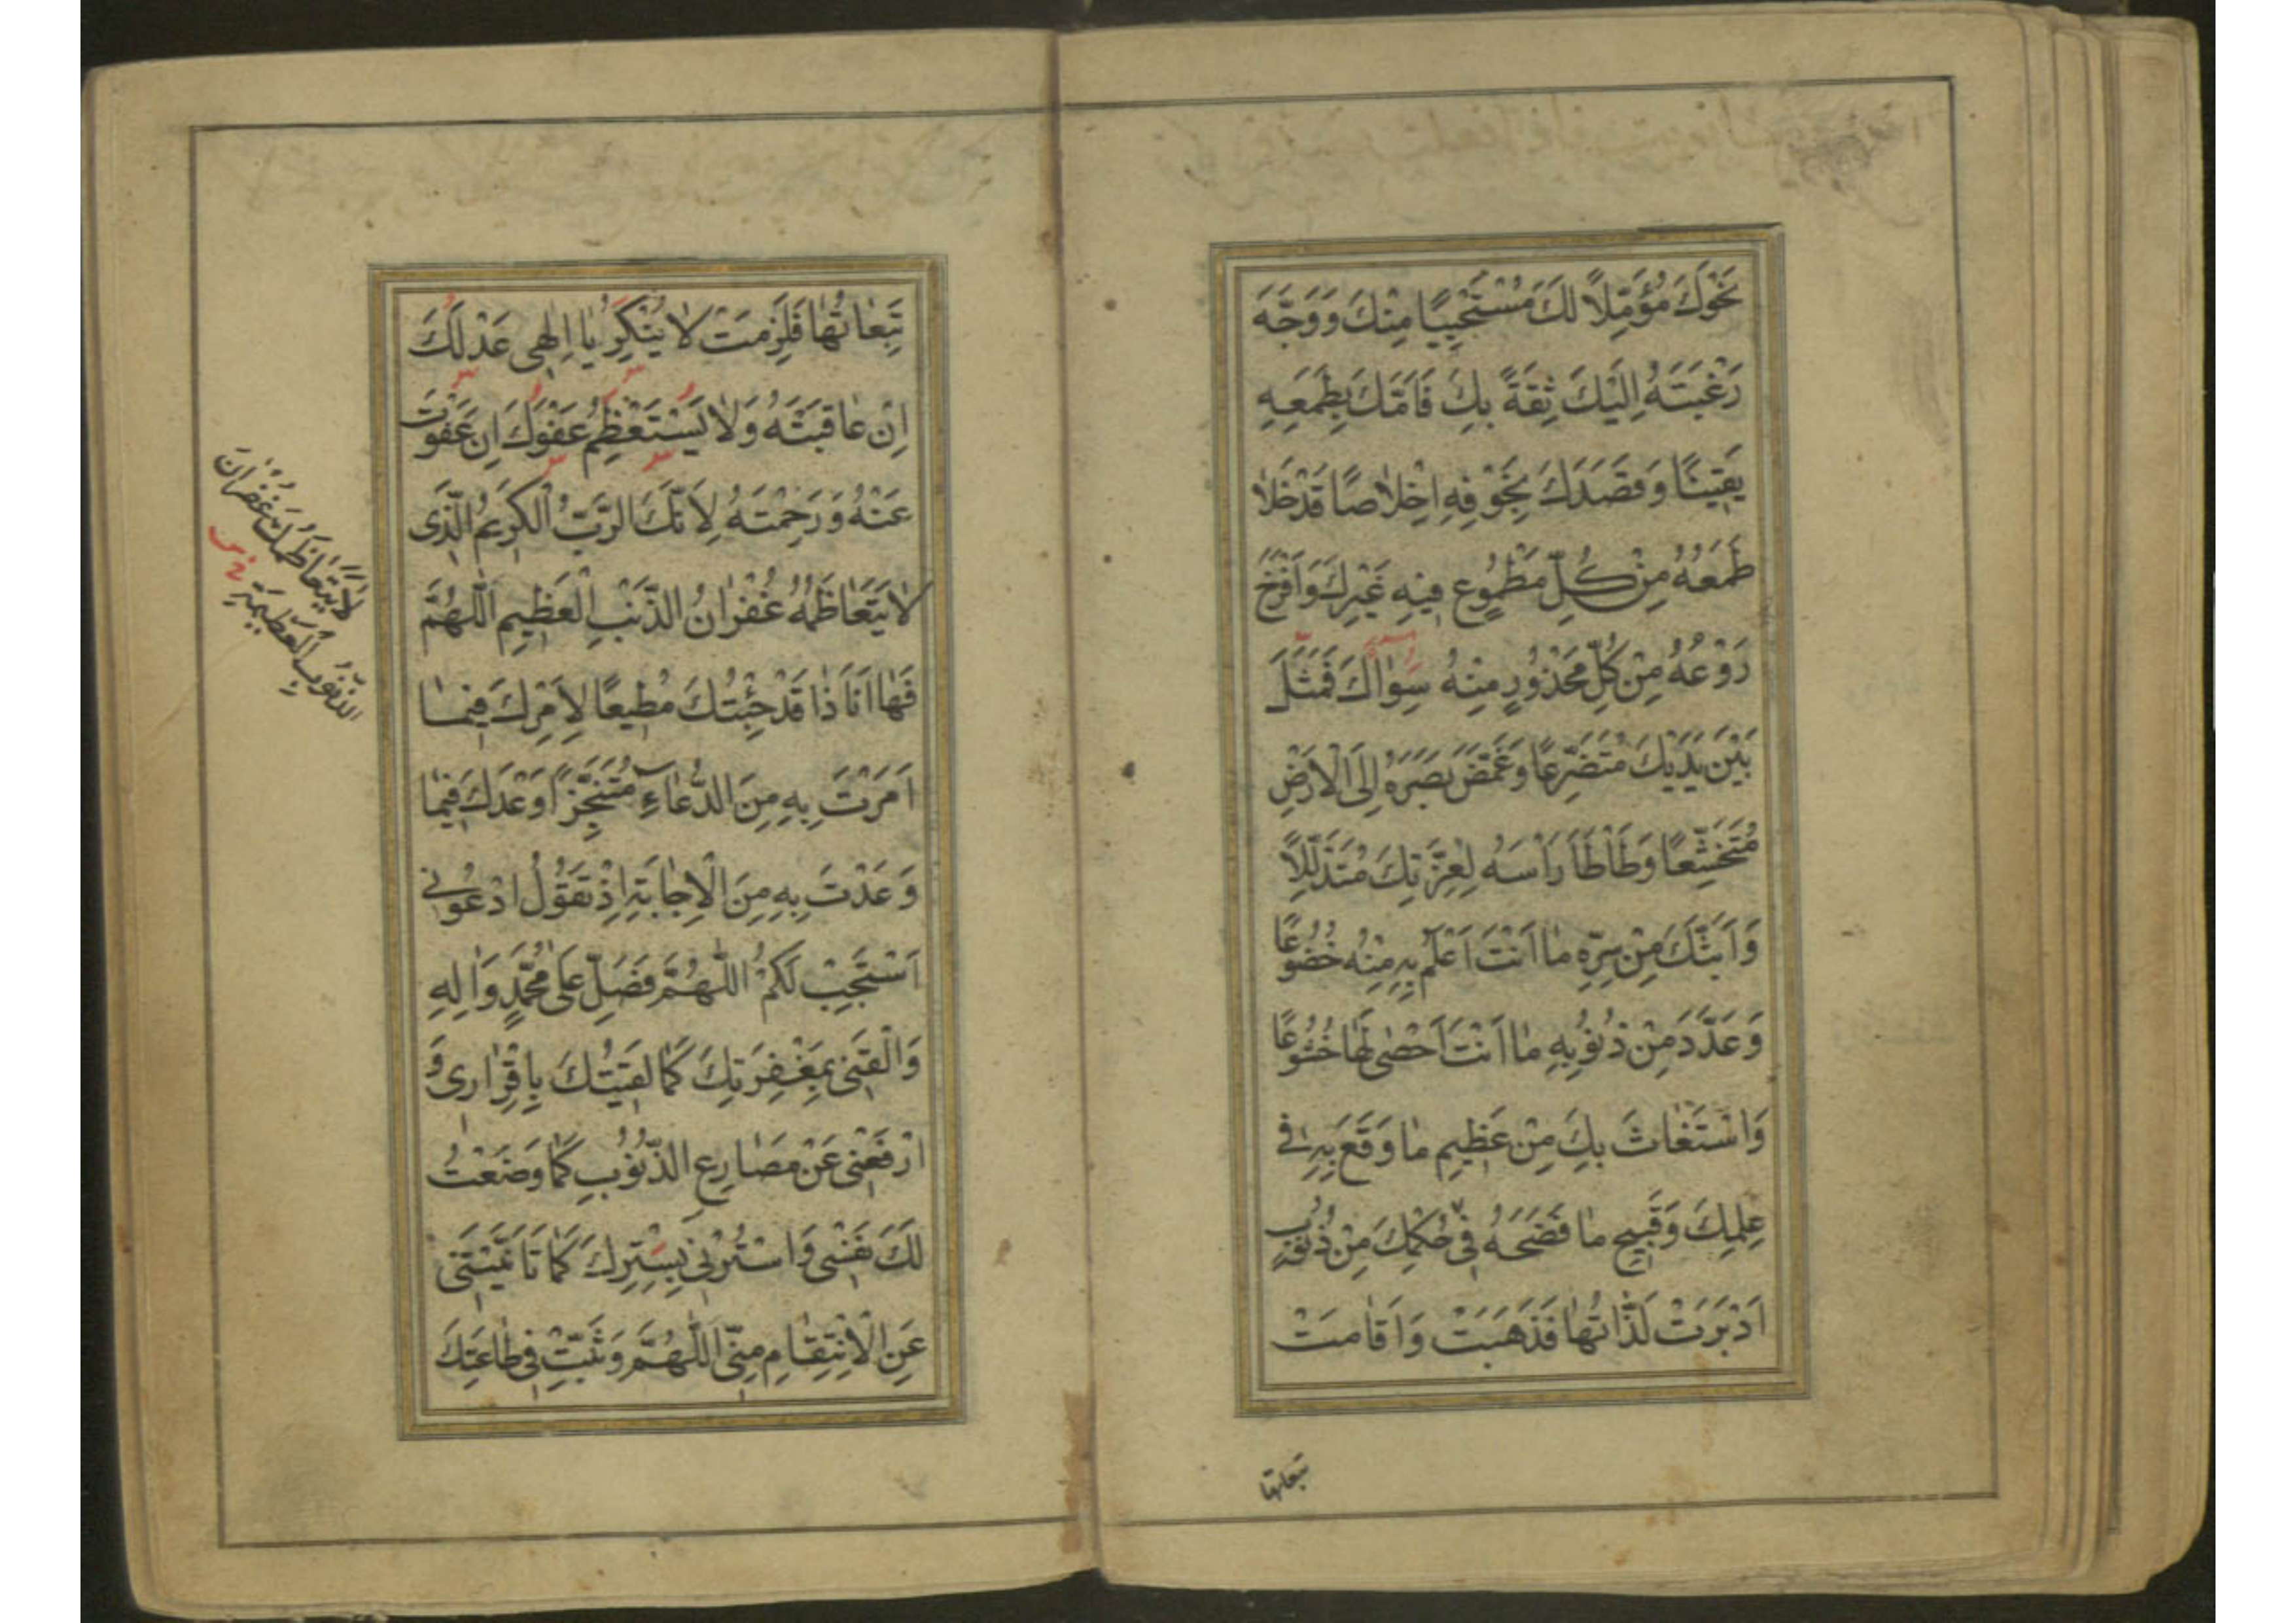 نَحْوَكَ مُؤَمِّلًا لَكَ مُسْتَحْيِيًا مِنْكَ وَوَجَّهَ
رَغْبَتَهُ اِلَيْكَ ثِقَةً بِكَ فَاَمَّكَ بِطَمَعِهِ
يَقِينًا وَقَصَدَكَ بِخَوْفِهِ اِخْلَاصًا قَدْ خَلَا
طَمَعُهُ مِنْ كُلِّ مَطْمُوعٍ فِيهِ غَيْرِكَ وَاَفْرَخَ
رَوْعُهُ مِنْ كُلِّ مَحْذُورٍ مِنْهُ سِوَاكَ فَمَثَلَ
بَيْنَ يَدَيْكَ مُتَضَرِّعًا وَغَمَّضَ بَصَرَهُ اِلَى الْاَرْضِ
مُتَخَشِّعًا وَطَاْطَاَ رَاْسَهُ لِعِزَّتِكَ مُتَذَلِّلًا
وَاَبَثَّكَ مِنْ سِرِّهِ مَا اَنْتَ اَعْلَمُ بِهِ مِنْهُ خُضُوعًا
وَعَدَّدَ مِنْ ذُنُوبِهِ مَا اَنْتَ اَحْصٰى لَهَا خُشُوعًا
وَاسْتَغَاثَ بِكَ مِنْ عَظِيمِ مَا وَقَعَ بِهِ فِي
عِلْمِكَ وَقَبِيحِ مَا فَضَحَهُ فِي حُكْمِكَ مِنْ ذُنُوبٍ
اَدْبَرَتْ لَذَّاتُهَا فَذَهَبَتْ وَاَقَامَتْ
تبعاتها
تَبِعَاتُهَا فَلَزِمَتْ لَا يُنْكِرُ يَا اِلٰهِي عَدْلَكَ
اِنْ عَاقَبْتَهُ وَلَا يَسْتَعْظِمُ عَفْوَكَ اِنْ عَفَوْتَ
عَنْهُ وَرَحِمْتَهُ لِاَنَّكَ الرَّبُّ الْكَرِيمُ الَّذِي
لَا يَتَعَاظَمُهُ غُفْرَانُ الذَّنْبِ الْعَظِيمِ اَللّٰهُمَّ
فَهَا اَنَا ذَا قَدْ جِئْتُكَ مُطِيعًا لِاَمْرِكَ فِيمَا
اَمَرْتَ بِهِ مِنَ الدُّعَاءِ مُتَنَجِّزًا وَعْدَكَ فِيمَا
وَعَدْتَ بِهِ مِنَ الْاِجَابَةِ اِذْ تَقُولُ ادْعُونِي
اَسْتَجِبْ لَكُمْ اَللّٰهُمَّ فَصَلِّ عَلٰى مُحَمَّدٍ وَاٰلِهِ
وَالْقَنِي بِمَغْفِرَتِكَ كَمَا لَقِيتُكَ بِاِقْرَارِي وَ
ارْفَعْنِي عَنْ مَصَارِعِ الذُّنُوبِ كَمَا وَضَعْتُ
لَكَ نَفْسِي وَاسْتُرْنِي بِسِتْرِكَ كَمَا تَاَنَّيْتَنِي
عَنِ الْاِنْتِقَامِ مِنِّي اَللّٰهُمَّ وَثَبِّتْ فِي طَاعَتِكَ
لَا يَتَعَاظَمُكَ غُفْرَانُ
الذُّنُوبِ الْعَظِيمَةِ